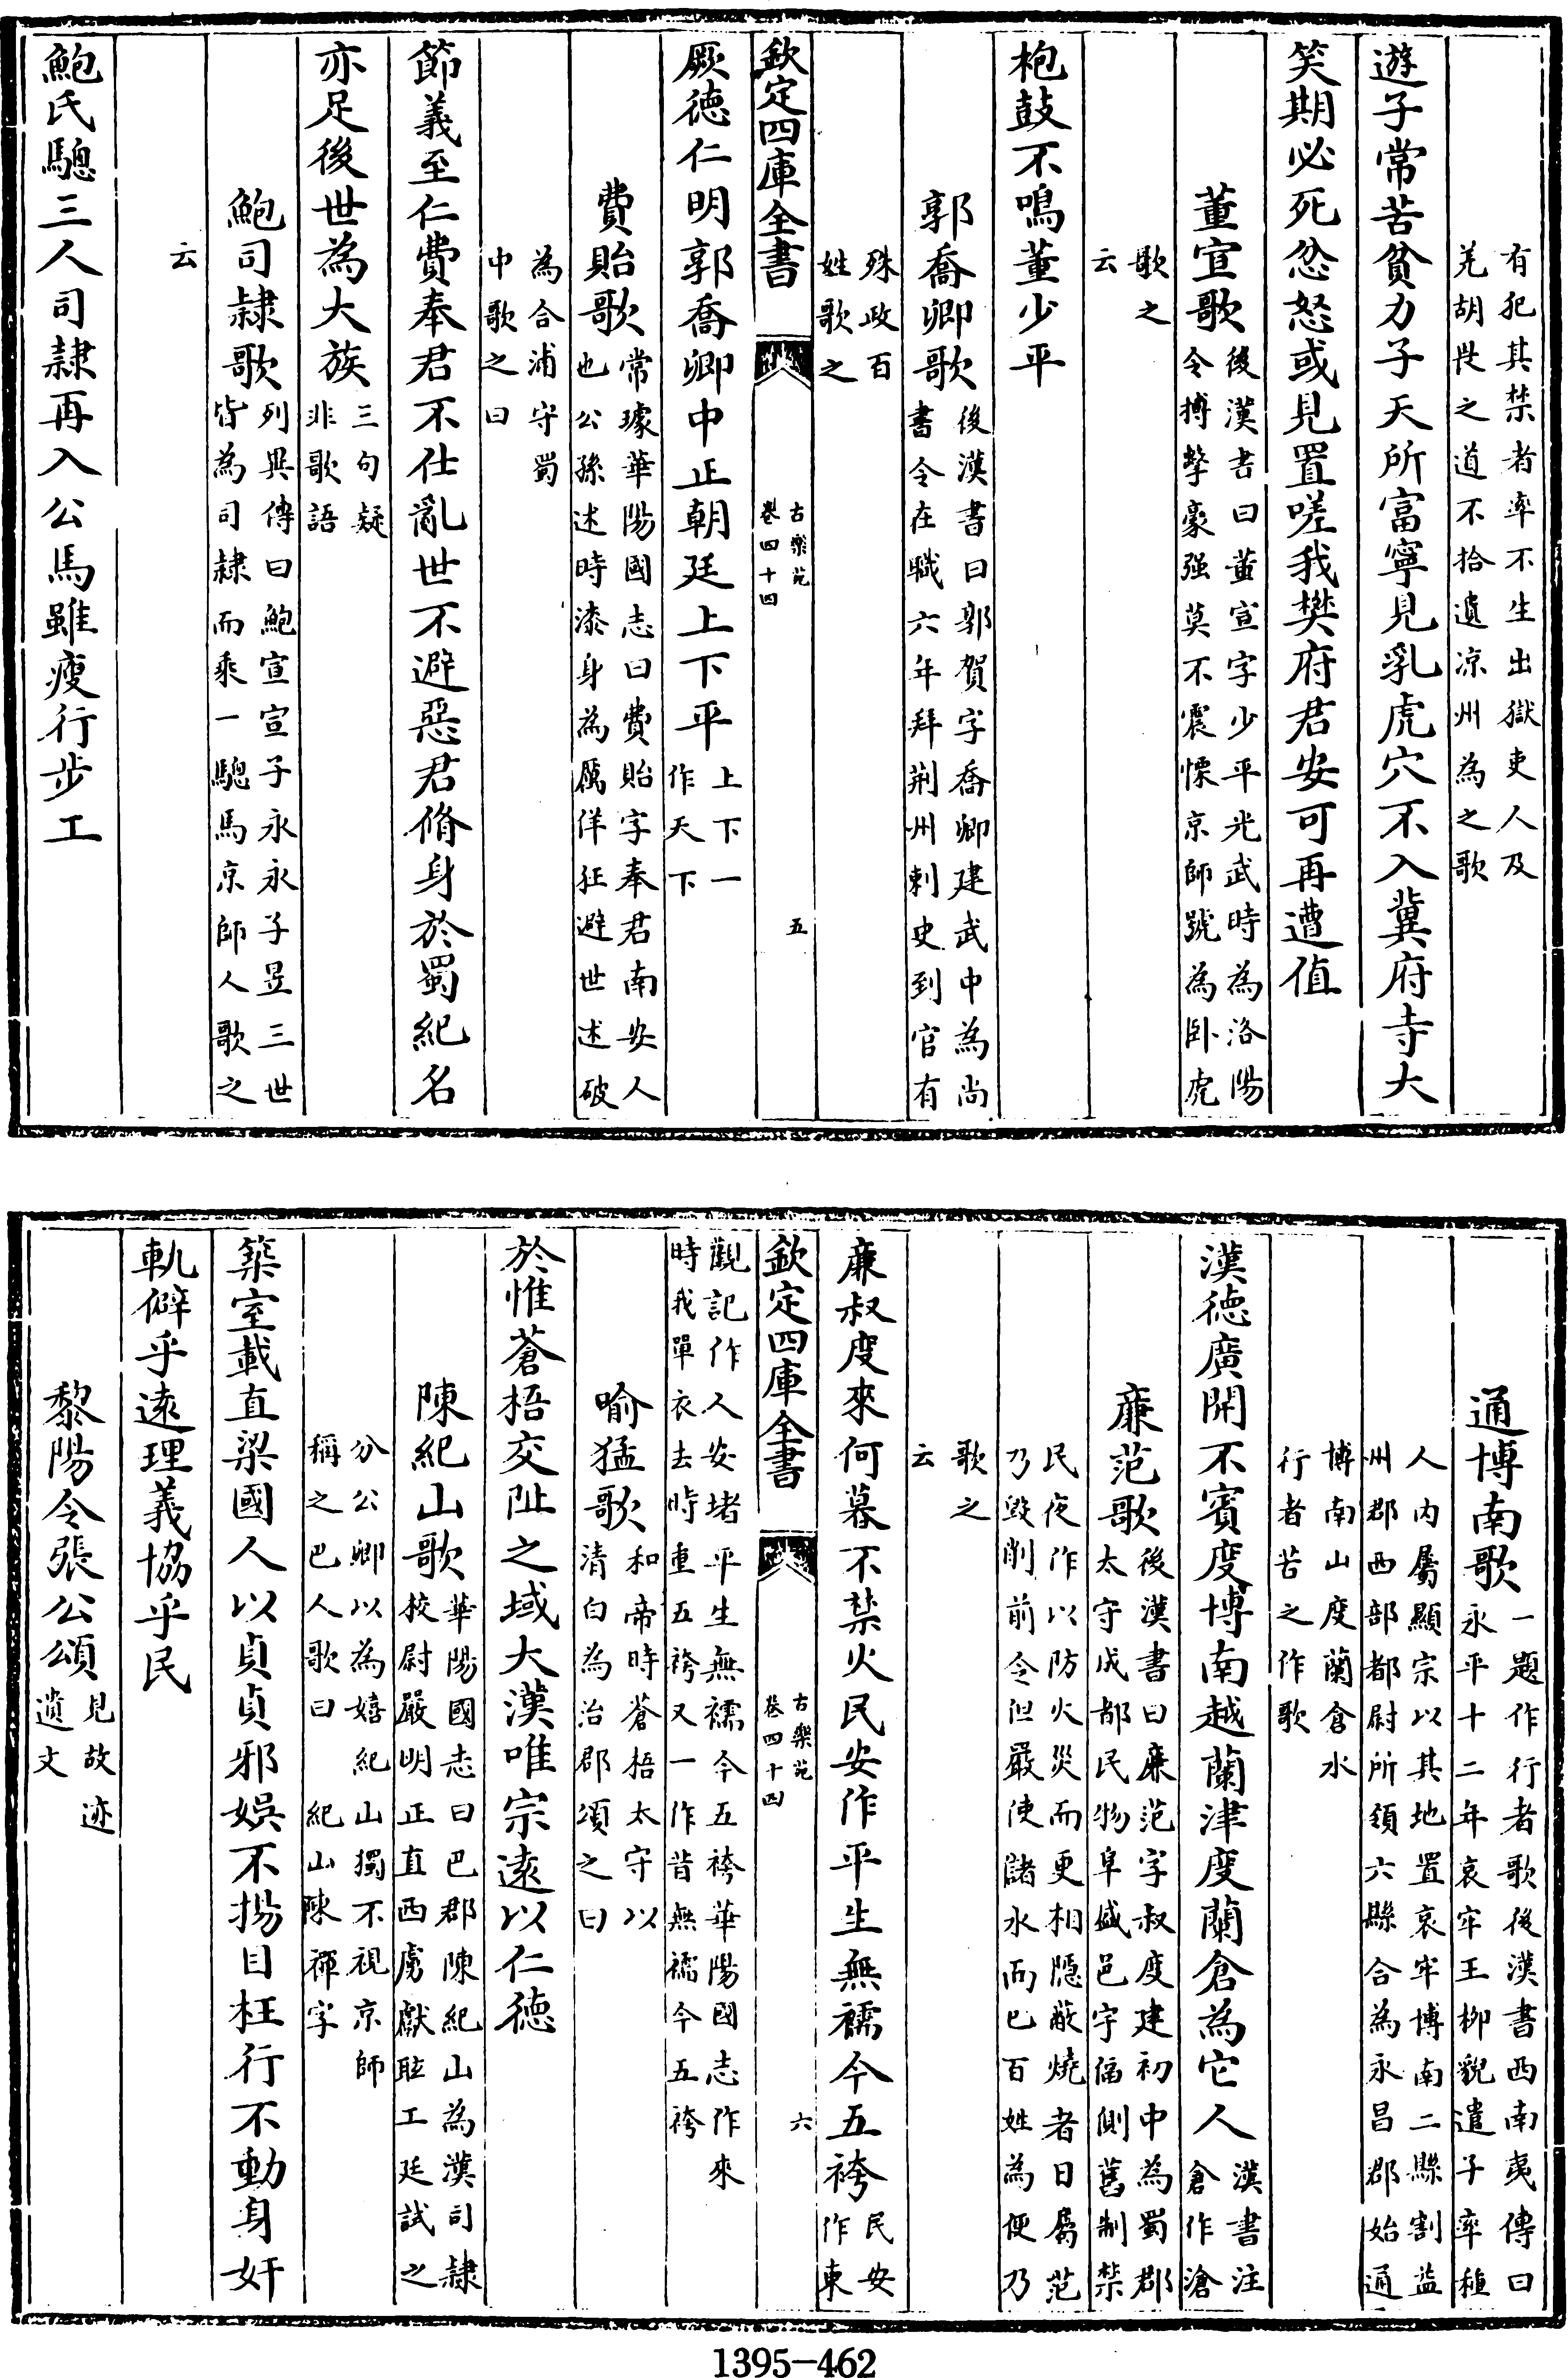 有犯其禁者率不生出獄吏人及
羌胡畏之道不拾遺凉州為之歌
遊子常苦貧力子天所富寧見乳虎穴不入冀府寺大
笑期必死忿怒或見置嗟我樊府君安可再遭值
董宣歌
後漢書曰董宣字少平光武時為洛陽
令搏擊豪强莫不震慄京師號為卧虎
歌之
云
枹鼓不鳴董少平
郭喬卿歌
後漢書曰郭賀字喬卿建武中為尚
書令在職六年拜荆州刺史到官有
殊政百
姓歌之
欽定四庫全書
古樂苑
卷四十四
五
厥徳仁明郭喬卿中正朝廷上下平
上下一
作天下
費貽歌
常璩華陽國志曰費貽字奉君南安人
也公孫述時漆身為厲佯狂避世述破
為合浦守蜀
中歌之曰
節義至仁費奉君不仕亂世不避惡君脩身於蜀紀名
亦足後世為大族
三句疑
非歌語
鮑司隷歌
列異傳曰鮑宣宣子永永子昱三世
皆為司隷而乘一驄馬京師人歌之
云
鮑氏驄三人司隷再入公馬雖瘦行步工
通博南歌
一題作行者歌後漢書西南夷傳曰
永平十二年哀牢王柳貌遣子率種
人内屬顯宗以其地置哀牢博南二縣割益
州郡西部都尉所領六縣合為永昌郡始通
博南山度蘭倉水
行者苦之作歌
漢徳廣開不賓度博南越蘭津度蘭倉為它人
漢書注
倉作滄
廉范歌
後漢書曰廉范字叔度建初中為蜀郡
太守成都民物阜盛邑宇偪側舊制禁
民夜作以防火災而更相隱蔽燒者日屬范
乃毁削前令但嚴使儲水而已百姓為便乃
歌之
云
廉叔度來何暮不禁火民安作平生無襦今五袴
民安
作東
欽定四庫全書
古樂苑
卷四十四
六
觀記作人安堵平生無襦今五袴華陽國志作來
時我單衣去時重五袴又一作昔無襦今五袴
喻猛歌
和帝時蒼梧太守以
清白為治郡頌之曰
於惟蒼梧交阯之域大漢唯宗遠以仁徳
陳紀山歌
華陽國志曰巴郡陳紀山為漢司隷
校尉嚴明正直西虜獻眩工廷試之
分公卿以為嬉紀山獨不視京師
稱之巴人歌曰　紀山陳禪字
築室載直梁國人以貞貞邪娱不揚目枉行不動身奸
軌僻乎遠理義協乎民
黎陽令張公頌
見故迹
遺文
1395-462